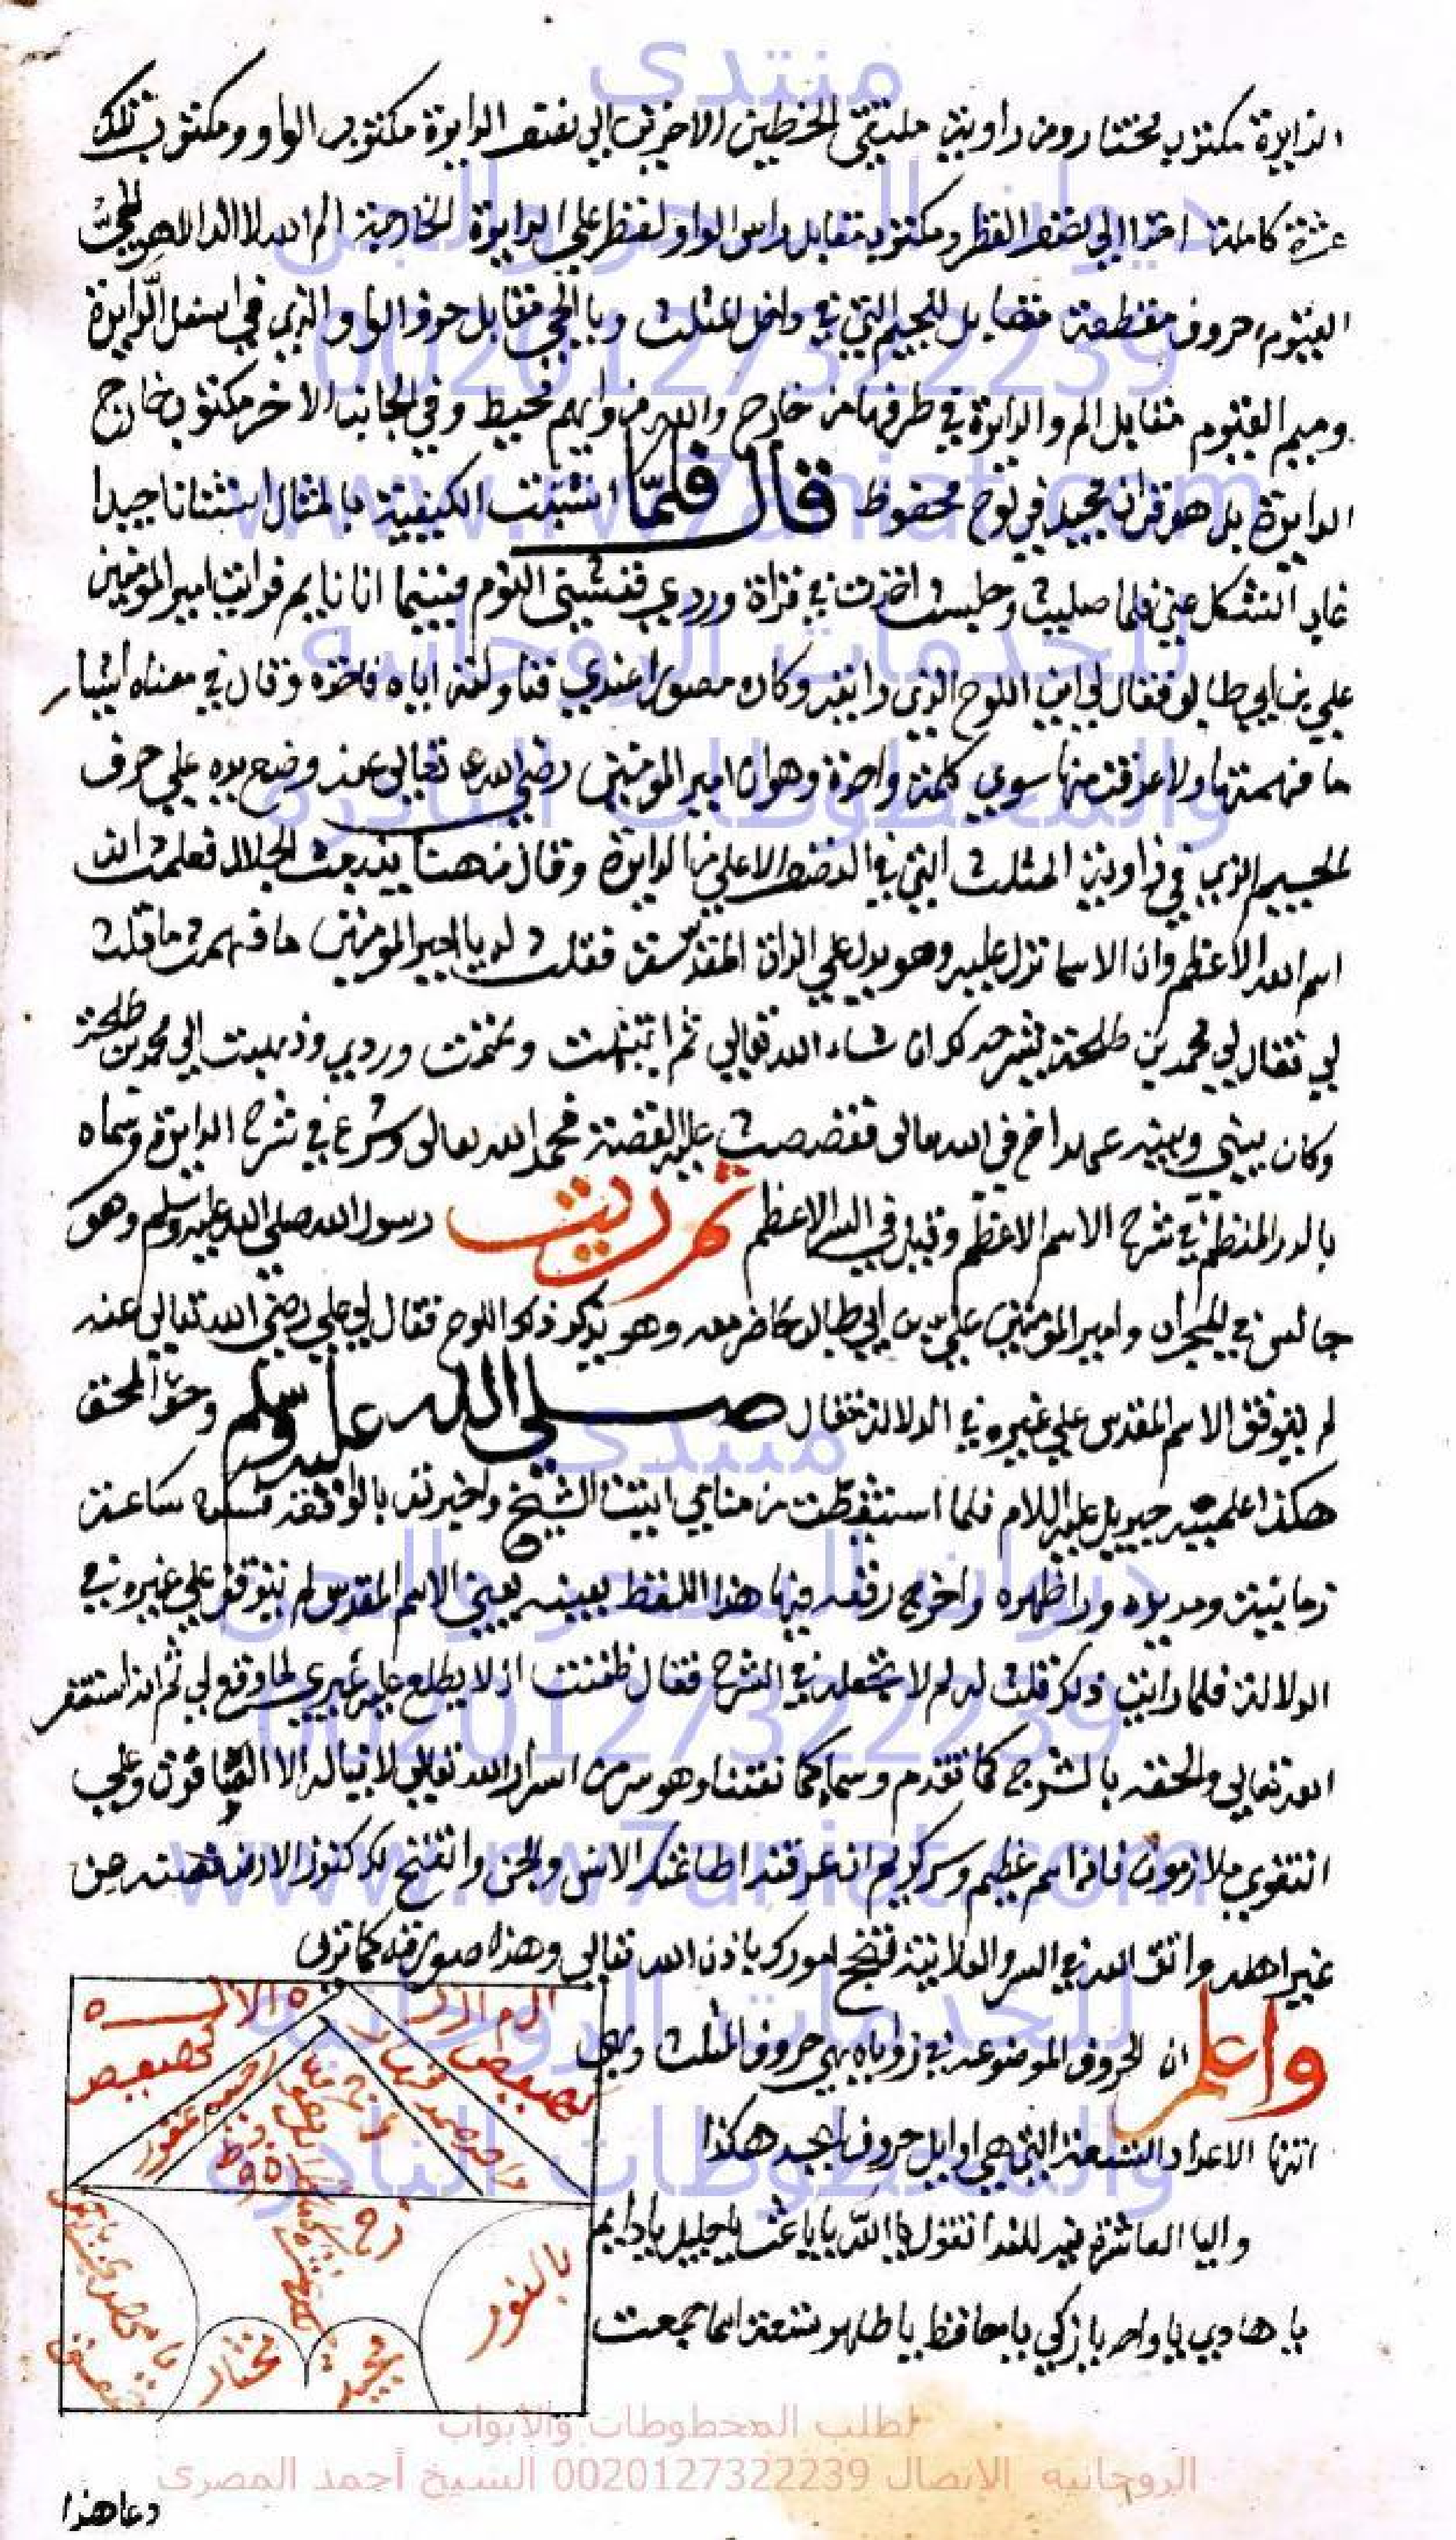 الدايرة مكتوب مختار ومن زاوية ملتقى الخطين الاخرين الي نصف الدايرة مكتوب الواو ومكتوب تلك
عشرة كاملة اخذا الي نصف القطر ومكتوب مقابل راس الواو لفظ علي الدايرة الخارجية الم الله لا اله الا هو الحي
القيوم حروف مقطعة مقابل للجيم التي في داخل المثلث ويا الحي مقابل حرف الواو الذي في اسفل الدايرة
وميم القيوم مقابل الم والدايرة في طرفها من خارج والله من ورايهم محيط وفي الجانب الاخر مكتوب خارج
الدايرة بل هو قران مجيد في لوح محفوظ قال فلما اثبتت الكيفية بالمثال اثباتا جيدا
غاب الشكل عني فلما صليت وجلست اخذت في قراة وردي فغشيني النوم فبينما انا نايم فرايت امير المومنين
علي بن ابي طالب فقال لي اين اللوح الذي رايته وكان مصورا عندي فناولته اياه فاخذه وقال في معناه اشيا
ما فهمتها ولا عرفت منها سوي كلمة واحدة وهو ان امير المومنين رضي الله تعالي عنه وضع يده علي حرف
الجيم الذي في زاوية المثلث التي في النصف الاعلي من الدايرة وقال من هنا ينبعث الجلال فعلمت انه
اسم الله الاعظم وان الاسما تزل عليه وهو يدل علي الذات المقدسة فقلت له يا امير المومنين ما فهمت ما قلت
لي فقال لي محمد بن طلحة يشرحه لك ان شاء الله تعالي ثم انتبهت وتممت وردي وذهبت الي محمد بن طلحة
وكان بيني وبينه عهد اخ في الله تعالى فقصصت عليه القصة فحمد الله تعالى وشرع في شرح الدايرة وسماه
بالدر المنظم في شرح الاسم الاعظم وقيل في السر الاعظم ثم رايت رسول الله صلي الله عليه وسلم وهو
جالس في المحراب وامير المومنين علي بن ابي طالب حاضر معه وهو يذكر ذلك اللوح فقال لي علي رضي الله تعالي عنه
لم يتوقف الاسم المقدس علي غيره في الدلالة فقال صلي الله عليه وسلم وحق الحق
هكذا علمنيه جبريل عليه السلام فلما استيقظت من منامي اتيت الشيخ واخبرته بالواقعة فسكت ساعة
زمانية ومد يده ورا ظهره واخرج رقعه فيها هذا اللفظ بعينه يعني الاسم المقدس لم يتوقف علي غيره في
الدلالة فلما رايت ذلك قلت له لم لا تجعله في الشرح فقال ظننت ان لا يطلع عليه غيري لما وقع لي ثم انه استغفر
الله تعالي والحقه بالشرح كما تقدم وسماه كما نعتناه وهو سر من اسرار الله تعالي لا يناله الا الصادقون وعلي
التقوي ملازمون فانه اسم عظيم وسر كريم ان عرفته اطاعتك الانس والجن وانفتح لك كنوز الارض فصنه عن
غير اهله واتق الله في السر والعلانية تنجح امورك باذن الله تعالي وهذا صورته كما تري
واعلم ان الحروف الموضوعه في زواياه هي حروف المثلث وهي
الاعداد التسعة التي هي اوايل حروف ابجد هكذا
واليا العاشرة فيه للندا تقول يا الله يا باعث يا جليل يا دايم
يا هادي يا واحد يا زكي يا حافظ يا طاهر تسعة اسما جمعت
كهيعص
بالنور
مختار
مجيد
دعا هذا
منتدى
ديوان السحر والجن
0020127322239
www.rw7aniat.com
للخدمات الروحانيه
والمخطوطات النادره
منتدى
ديوان السحر والجن
0020127322239
www.rw7aniat.com
للخدمات الروحانيه
والمخطوطات النادره
لطلب المخطوطات والأبواب
الروحانيه الاتصال 0020127322239 الشيخ أحمد المصرى